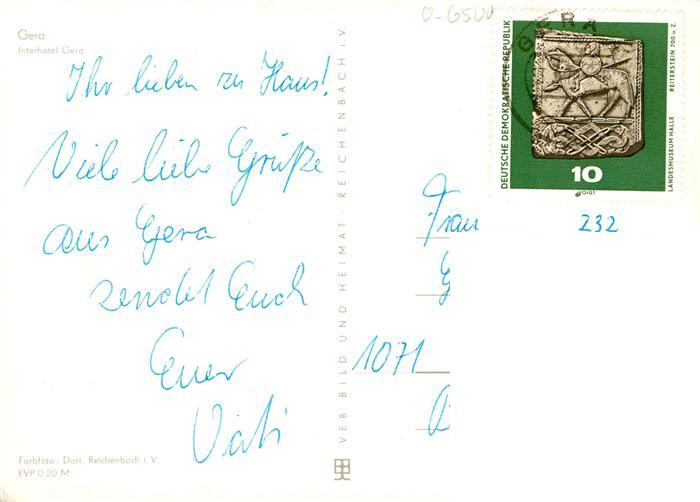 Gera
Interhotel Gera
Ihr lieben zu Haus!
Viele liebe Grüße
aus Gera
sendet Euch
Euer
Vati
Farbfoto: Darr, Reichenbach i. V.
EVP 0.20 M
VEB BILD UND HEIMAT · REICHENBACH i. V.
0-6500
GERA
DEUTSCHE DEMOKRATISCHE REPUBLIK
REITERSTEIN 700 u. Z.
LANDESMUSEUM HALLE
10
VOIGT
Frau
232
G
1071